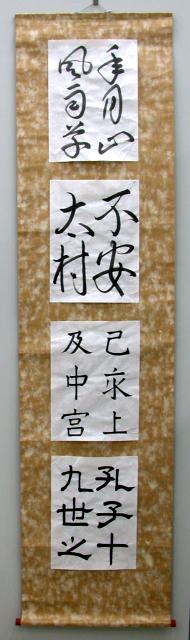 年月山
風雨草
不安
太村
己求上
及中宮
孔子十
九世之